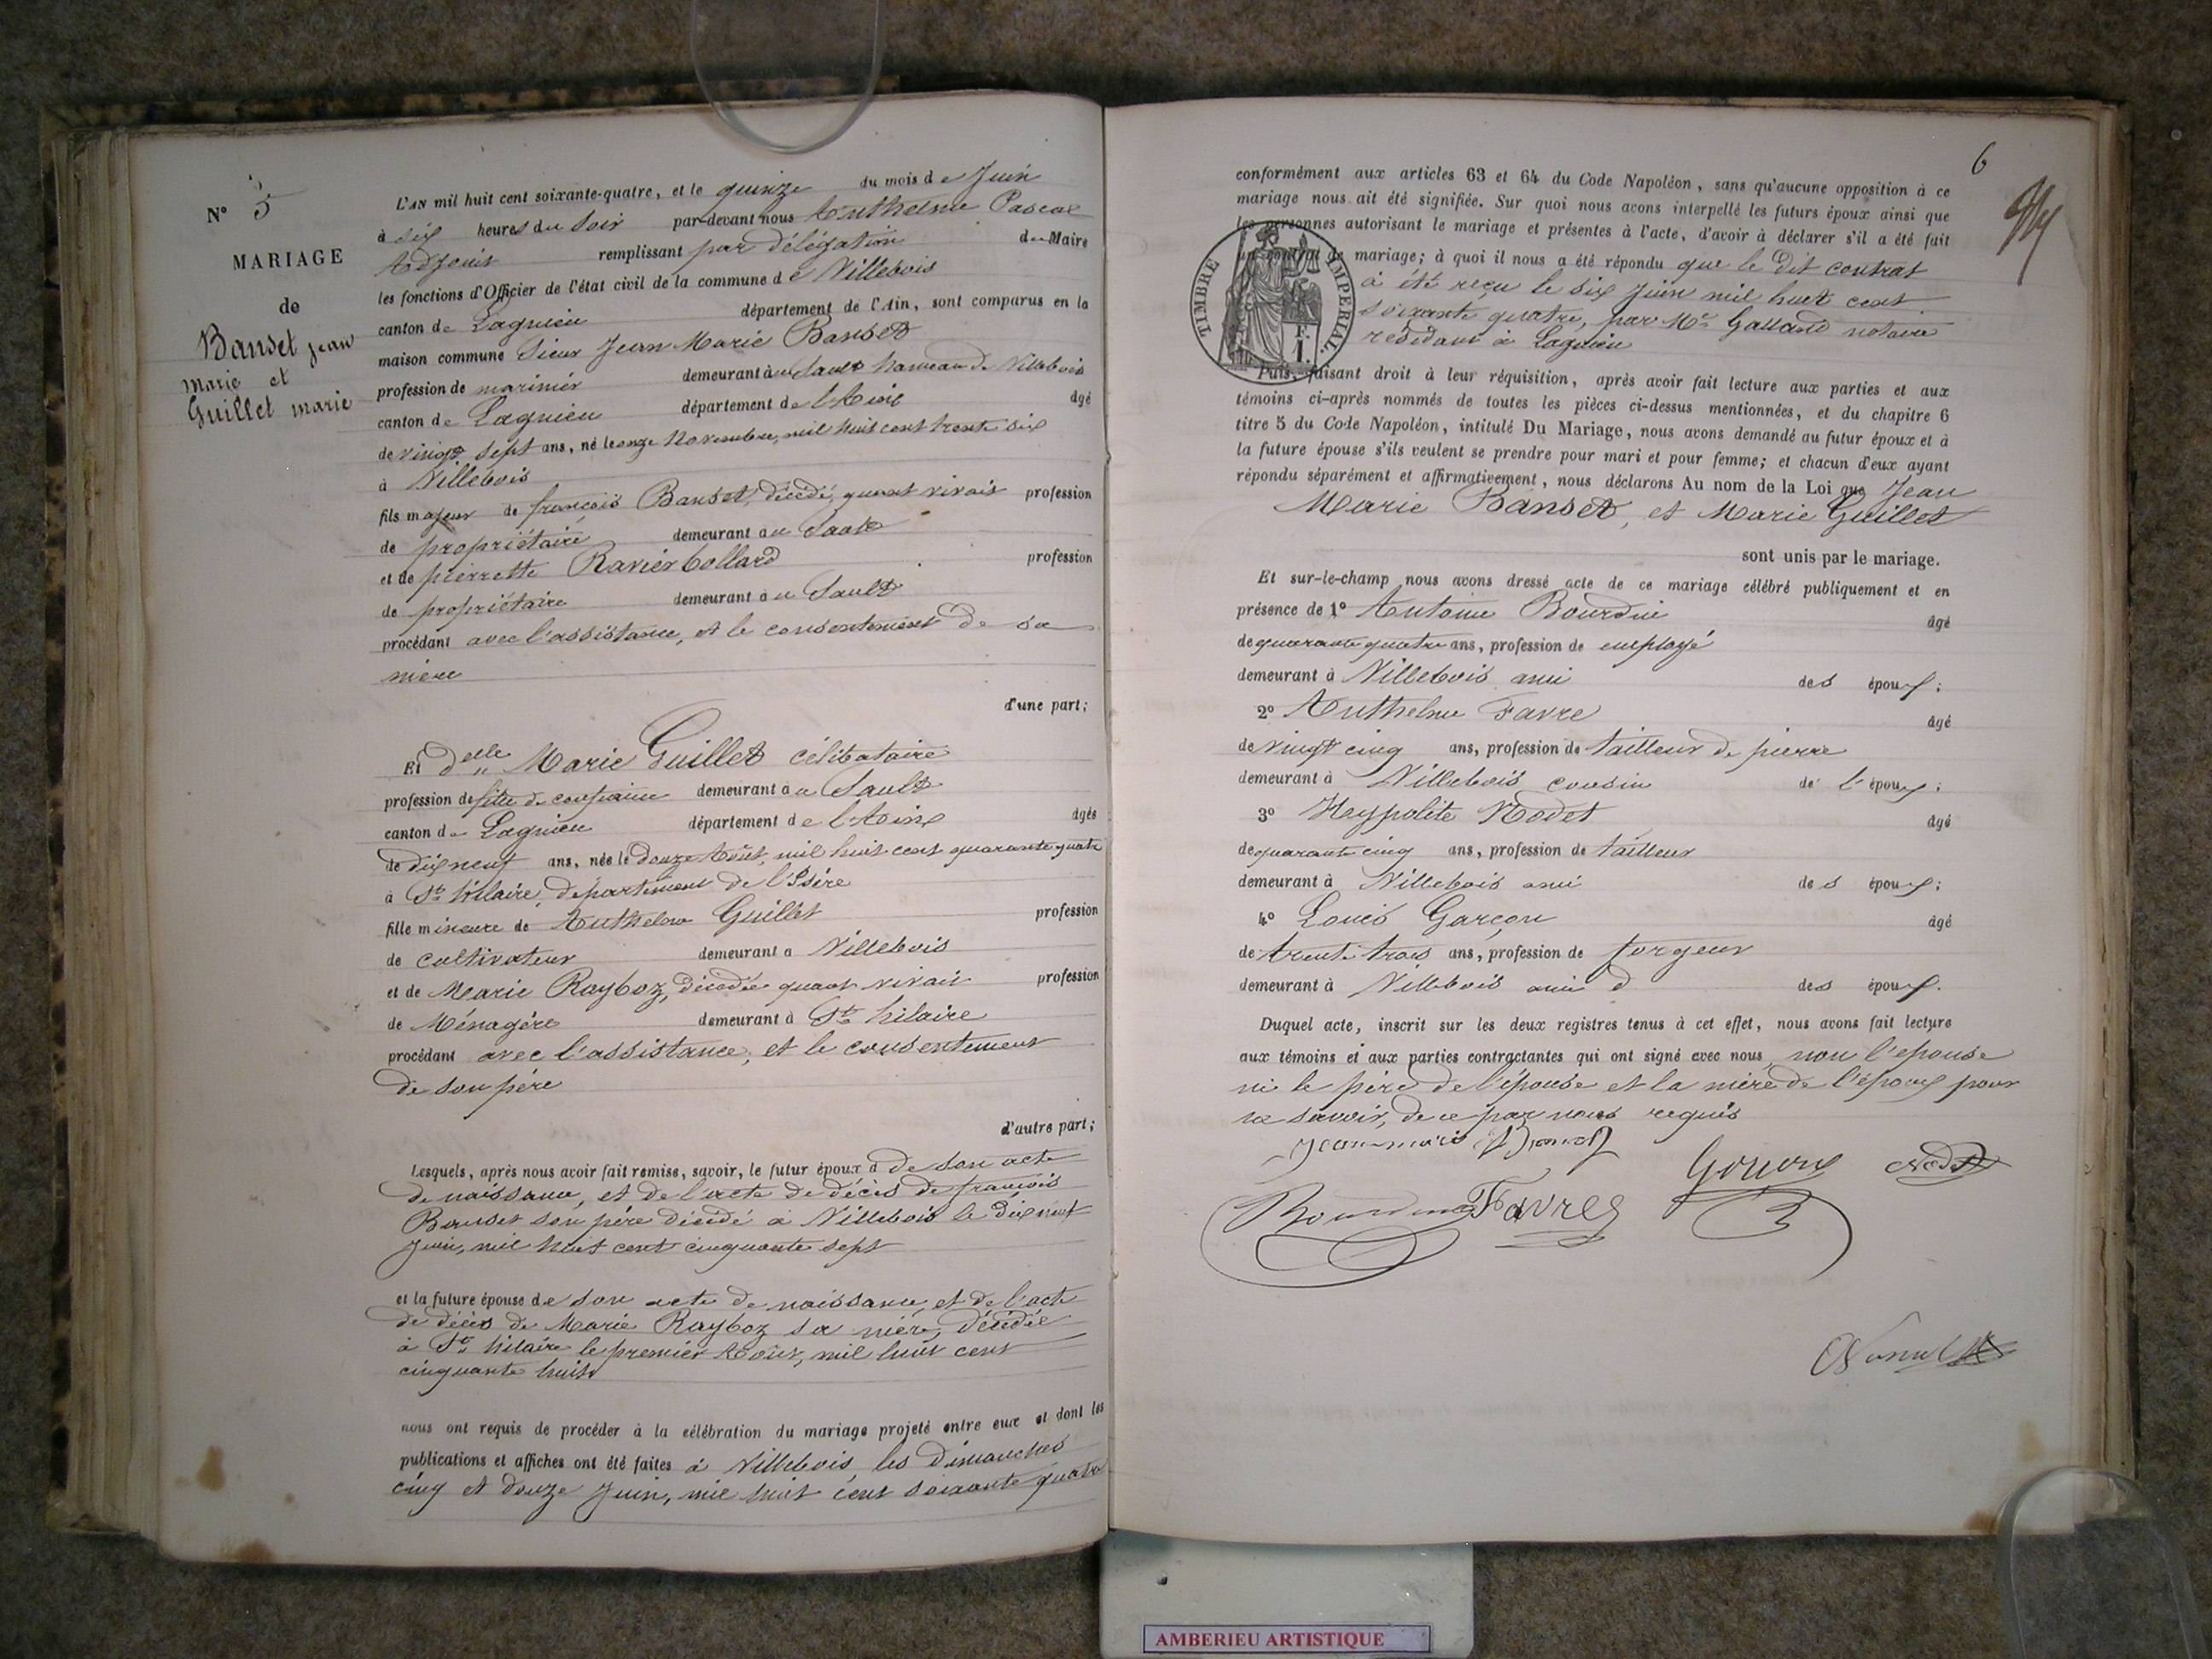 N° 5
MARIAGE
de
Banset Jean
marie et
Guillet marie
L'AN mil huit cent soixante-quatre, et le quinze du mois de Juin
à six heures du Soir par-devant nous Anthelme Pascal
Adjoint remplissant par délégation du Maire
les fonctions d'Officier de l'état civil de la commune de Villebois
canton de Lagnieu département de l'Ain, sont comparus en la
maison commune Sieur Jean Marie Banset
profession de marinier demeurant au Sault hameau de Villebois
canton de Lagnieu département de l'Ain âgé
de vingt sept ans, né le onze Novembre, mil huit cent trente six
à Villebois
fils majeur de françois Banset, décédé, quant vivait profession
de propriétaire demeurant au Sault
et de pierrette Ravier Collard profession
de propriétaire demeurant au Sault
procédant avec l'assistance, et le consentement de sa
mère
d'une part;
Et Delle Marie Guillet célibataire
profession de fille de confiance demeurant au Sault
canton de Lagnieu département de l'Ain âgée
de dix neuf ans, née le douze Août, mil huit cent quarante quatre
à St hilaire, département de l'Isère
fille mineure de Anthelme Guillet profession
de cultivateur demeurant à Villebois
et de Marie Rayboz, décédée quant vivait profession
de Ménagère demeurant à St hilaire
procédant avec l'assistance, et le consentement
de son père
d'autre part;
Lesquels, après nous avoir fait remise, savoir, le futur époux d de son acte
de naissance, et de l'acte de décès de françois
Banset son père décédé à Villebois le dix neuf
Juin, mil huit cent cinquante sept
et la future épouse de son acte de naissance, et de l'acte
de décès de Marie Rayboz sa mère, décédée
à St hilaire le premier Août, mil huit cent
cinquante huit
nous ont requis de procéder à la célébration du mariage projeté entre eux et dont les
publications et affiches ont été faites à Villebois, les Dimanches
cinq et douze Juin, mil huit cent soixante quatre
6
conformément aux articles 63 et 64 du Code Napoléon, sans qu'aucune opposition à ce
mariage nous ait été signifiée. Sur quoi nous avons interpellé les futurs époux ainsi que
les personnes autorisant le mariage et présentes à l'acte, d'avoir à déclarer s'il a été fait
un contrat de mariage; à quoi il nous a été répondu que le dit contrat
à été reçu le six Juin mil huit cent
soixante quatre, par Me Galland notaire
résidant à Lagnieu
TIMBRE IMPERIAL.
F.
1.
Puis, faisant droit à leur réquisition, après avoir fait lecture aux parties et aux
témoins ci-après nommés de toutes les pièces ci-dessus mentionnées, et du chapitre 6
titre 5 du Code Napoléon, intitulé Du Mariage, nous avons demandé au futur époux et à
la future épouse s'ils veulent se prendre pour mari et pour femme; et chacun d'eux ayant
répondu séparément et affirmativement, nous déclarons Au nom de la Loi que Jean
Marie Banset, et Marie Guillet
sont unis par le mariage.
Et sur-le-champ nous avons dressé acte de ce mariage célébré publiquement et en
présence de 1° Antoine Bourdin âgé
de quarante quatre ans, profession de employé
demeurant à Villebois ami des époux;
2° Anthelme Favre âgé
de vingt cinq ans, profession de tailleur de pierre
demeurant à Villebois cousin de l'époux;
3° Heypolite Nodet âgé
de quarante cinq ans, profession de tailleur
demeurant à Villebois ami des époux;
4° Louis Garçon âgé
de trente trois ans, profession de forgeur
demeurant à Villebois ami d des époux.
Duquel acte, inscrit sur les deux registres tenus à cet effet, nous avons fait lecture
aux témoins et aux parties contractantes qui ont signé avec nous non l'épouse
ni le père de l'épouse et la mère de l'époux pour
ne savoir, de ce par nous requis
Jean marie Banset
Bourdin Favre Nodet
AMBERIEU ARTISTIQUE